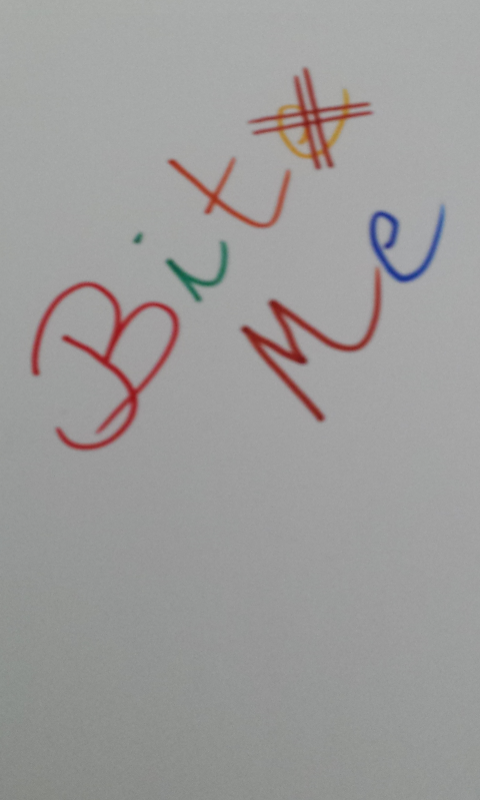 Bit
Me